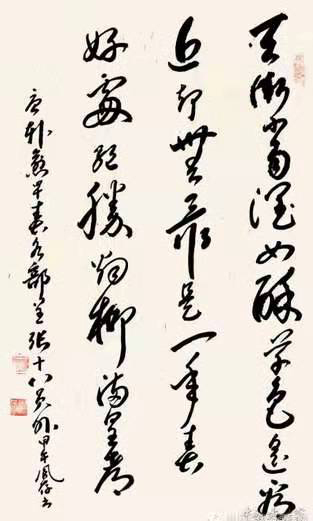 天街小雨潤如酥草色遙看
近却無最是一年春
好處絕勝烟柳滿皇都
唐韓愈早春水部呈張十八員外甲午風存書